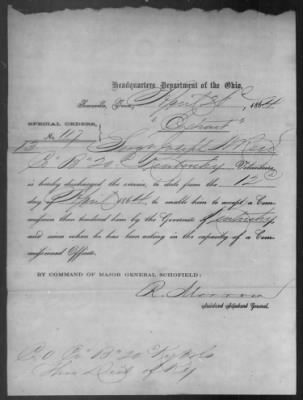 Headquarters Department of the Ohio,
Knoxville, Tenn., April 26" 1864
"Extract"
SPECIAL ORDERS,
No. 117
12 Serg't Joseph W
Co "B" 20" Kentucky Volunteers,
is hereby discharged the service, to date from the 12"
day of April 1864, to enable him to accept a Com-
mission then tendered him by the Governor of Kentucky,
and since when he has been acting in the capacity of a Com-
missioned Officer.
BY COMMAND OF MAJOR GENERAL SCHOFIELD:
R. Morrow
Assistant Adjutant General.
C.O. Co "B" 20" Ky Vols
Dist of Ky